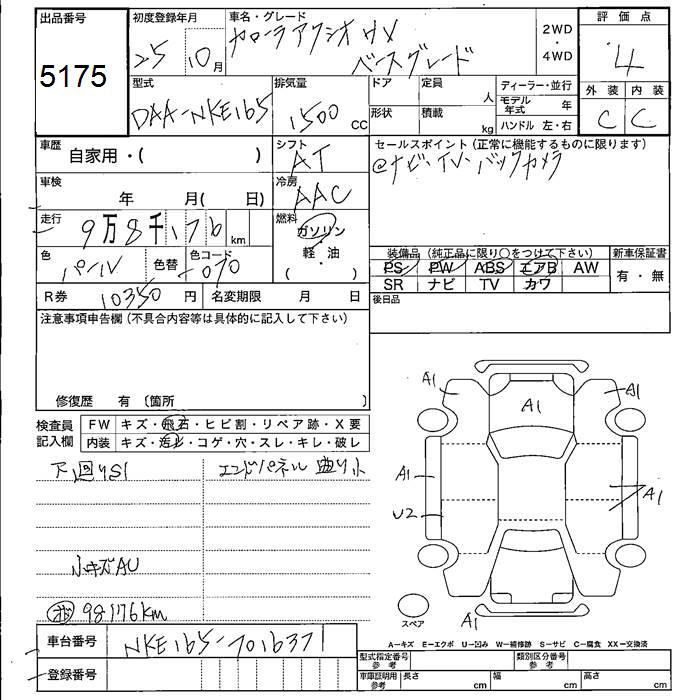 出品番号 初度登録年月 車名・グレード 2WD ・ 4WD 評価点
5175 25 10月 カローラアクシオ HV ベースグレード 4
外装 内装
C C
型式 排気量 ドア 定員 人 ディーラー・並行
DAA-NKE165 1500 cc 形状 積載 kg モデル年式 年
ハンドル 左・右
車歴 自家用・( ) シフト AT セールスポイント (正常に機能するものに限ります)
@ナビ、TV、バックカメラ
車検 年 月( 日) 冷房 AAC
走行 9万8千176 km 燃料 ガソリン ・ 軽・油 ( )
色 パール 色替 色コード 070
装備品 (純正品に限り○をつけて下さい) 新車保証書
PS PW ABS エアB AW 有・無
SR ナビ TV カワ
R券 10350円 名変期限 月 日 後日品
注意事項申告欄 (不具合内容等は具体的に記入して下さい)
修復歴 有 〔箇所 〕
検査員記入欄 FW キズ・飛石・ヒビ割・リペア跡・X要
内装 キズ・汚れ・コゲ・穴・スレ・キレ・破レ
下回りS1 エンドパネル 曲り小
小キズAU
98176km
A1 A1 A1
A1 A1
U2
スペア A1
車台番号 NKE165-7016371
登録番号
A=キズ E=エクボ U=凹み W=補修跡 S=サビ C=腐食 XX=交換済
型式指定番号 参考 類別区分番号 参考
車庫証明用 参考 長さ cm 幅 cm 高さ cm